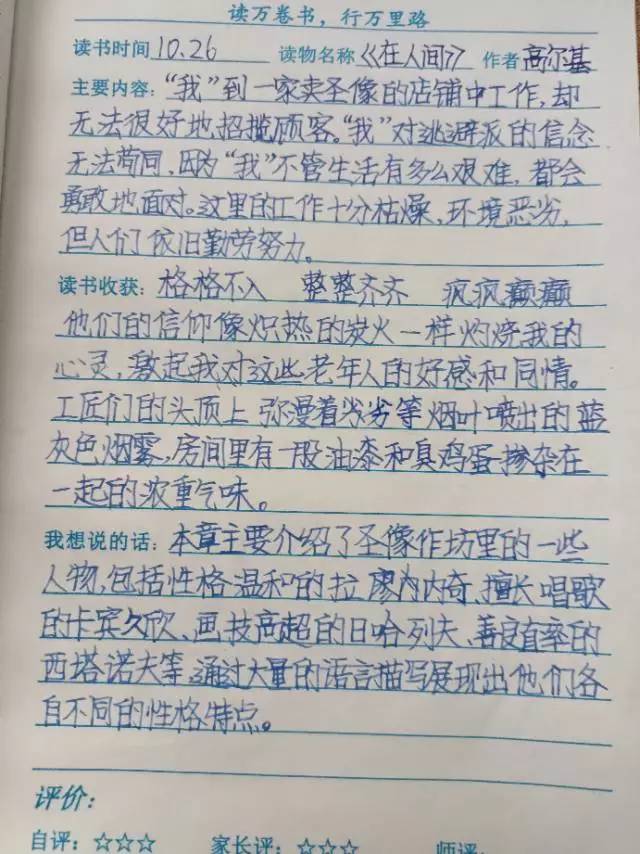 读万卷书，行万里路
读书时间 10.26 读物名称《在人间》 作者 高尔基
主要内容：“我”到一家卖圣像的店铺中工作，却
无法很好地招揽顾客。“我”对逃避派的信念
无法苟同，因为“我”不管生活有多么艰难，都会
勇敢地面对。这里的工作十分枯燥，环境恶劣，
但人们依旧勤劳努力。
读书收获：格格不入 整整齐齐 疯疯癫癫
他们的信仰像炽热的炭火一样灼烧我的
心灵，激起我对这些老年人的好感和同情。
工匠们的头顶上弥漫着劣劣等烟叶喷出的蓝
灰色烟雾，房间里有一股油漆和臭鸡蛋掺杂在
一起的浓重气味。
我想说的话：本章主要介绍了圣像作坊里的一些
人物，包括性格温和的拉廖内内奇、擅长唱歌
的卡宾久欣、画技高超的日哈列夫、善良直率的
西塔诺夫等，通过大量的语言描写展现出他们各
自不同的性格特点。
评价：
自评：☆☆☆ 家长评：☆☆☆ 师评：